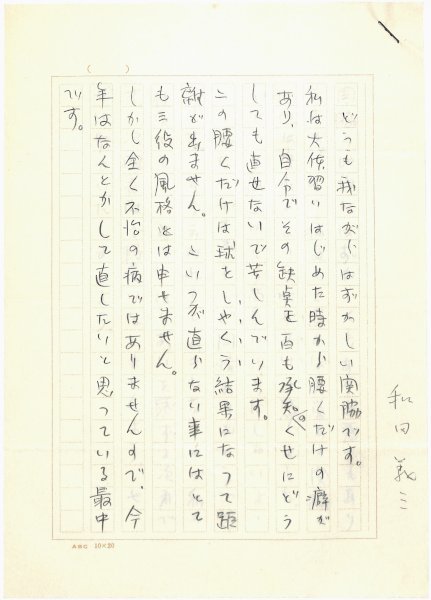 和田義三
どうも我ながらはずかしい関脇です。
私は大体習いはじめた時から腰くだけの癖が
あり、自分でその缺点を百も承知のくせにどう
しても直せないで苦しんでいます。
この腰くだけは球をしゃくう結果になって距
離が出ません。こいつが直らない事にはとて
も三役の風格とは申せません。
しかし全く不治の病ではありませんので、今
年はなんとかして直したいと思っている最中
です。
( )
ABC 10×20